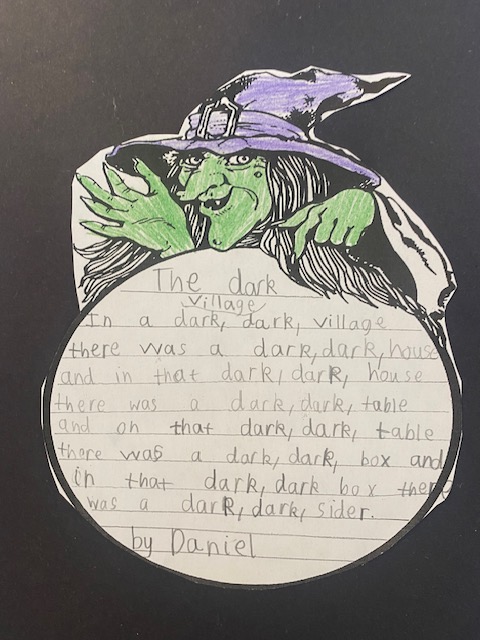 The dark
village
In a dark, dark, village
there was a dark, dark, house
and in that dark, dark, house
there was a dark, dark, table
and on that dark, dark, table
there was a dark, dark, box and
in that dark, dark box there
was a dark, dark, sider.
by Daniel